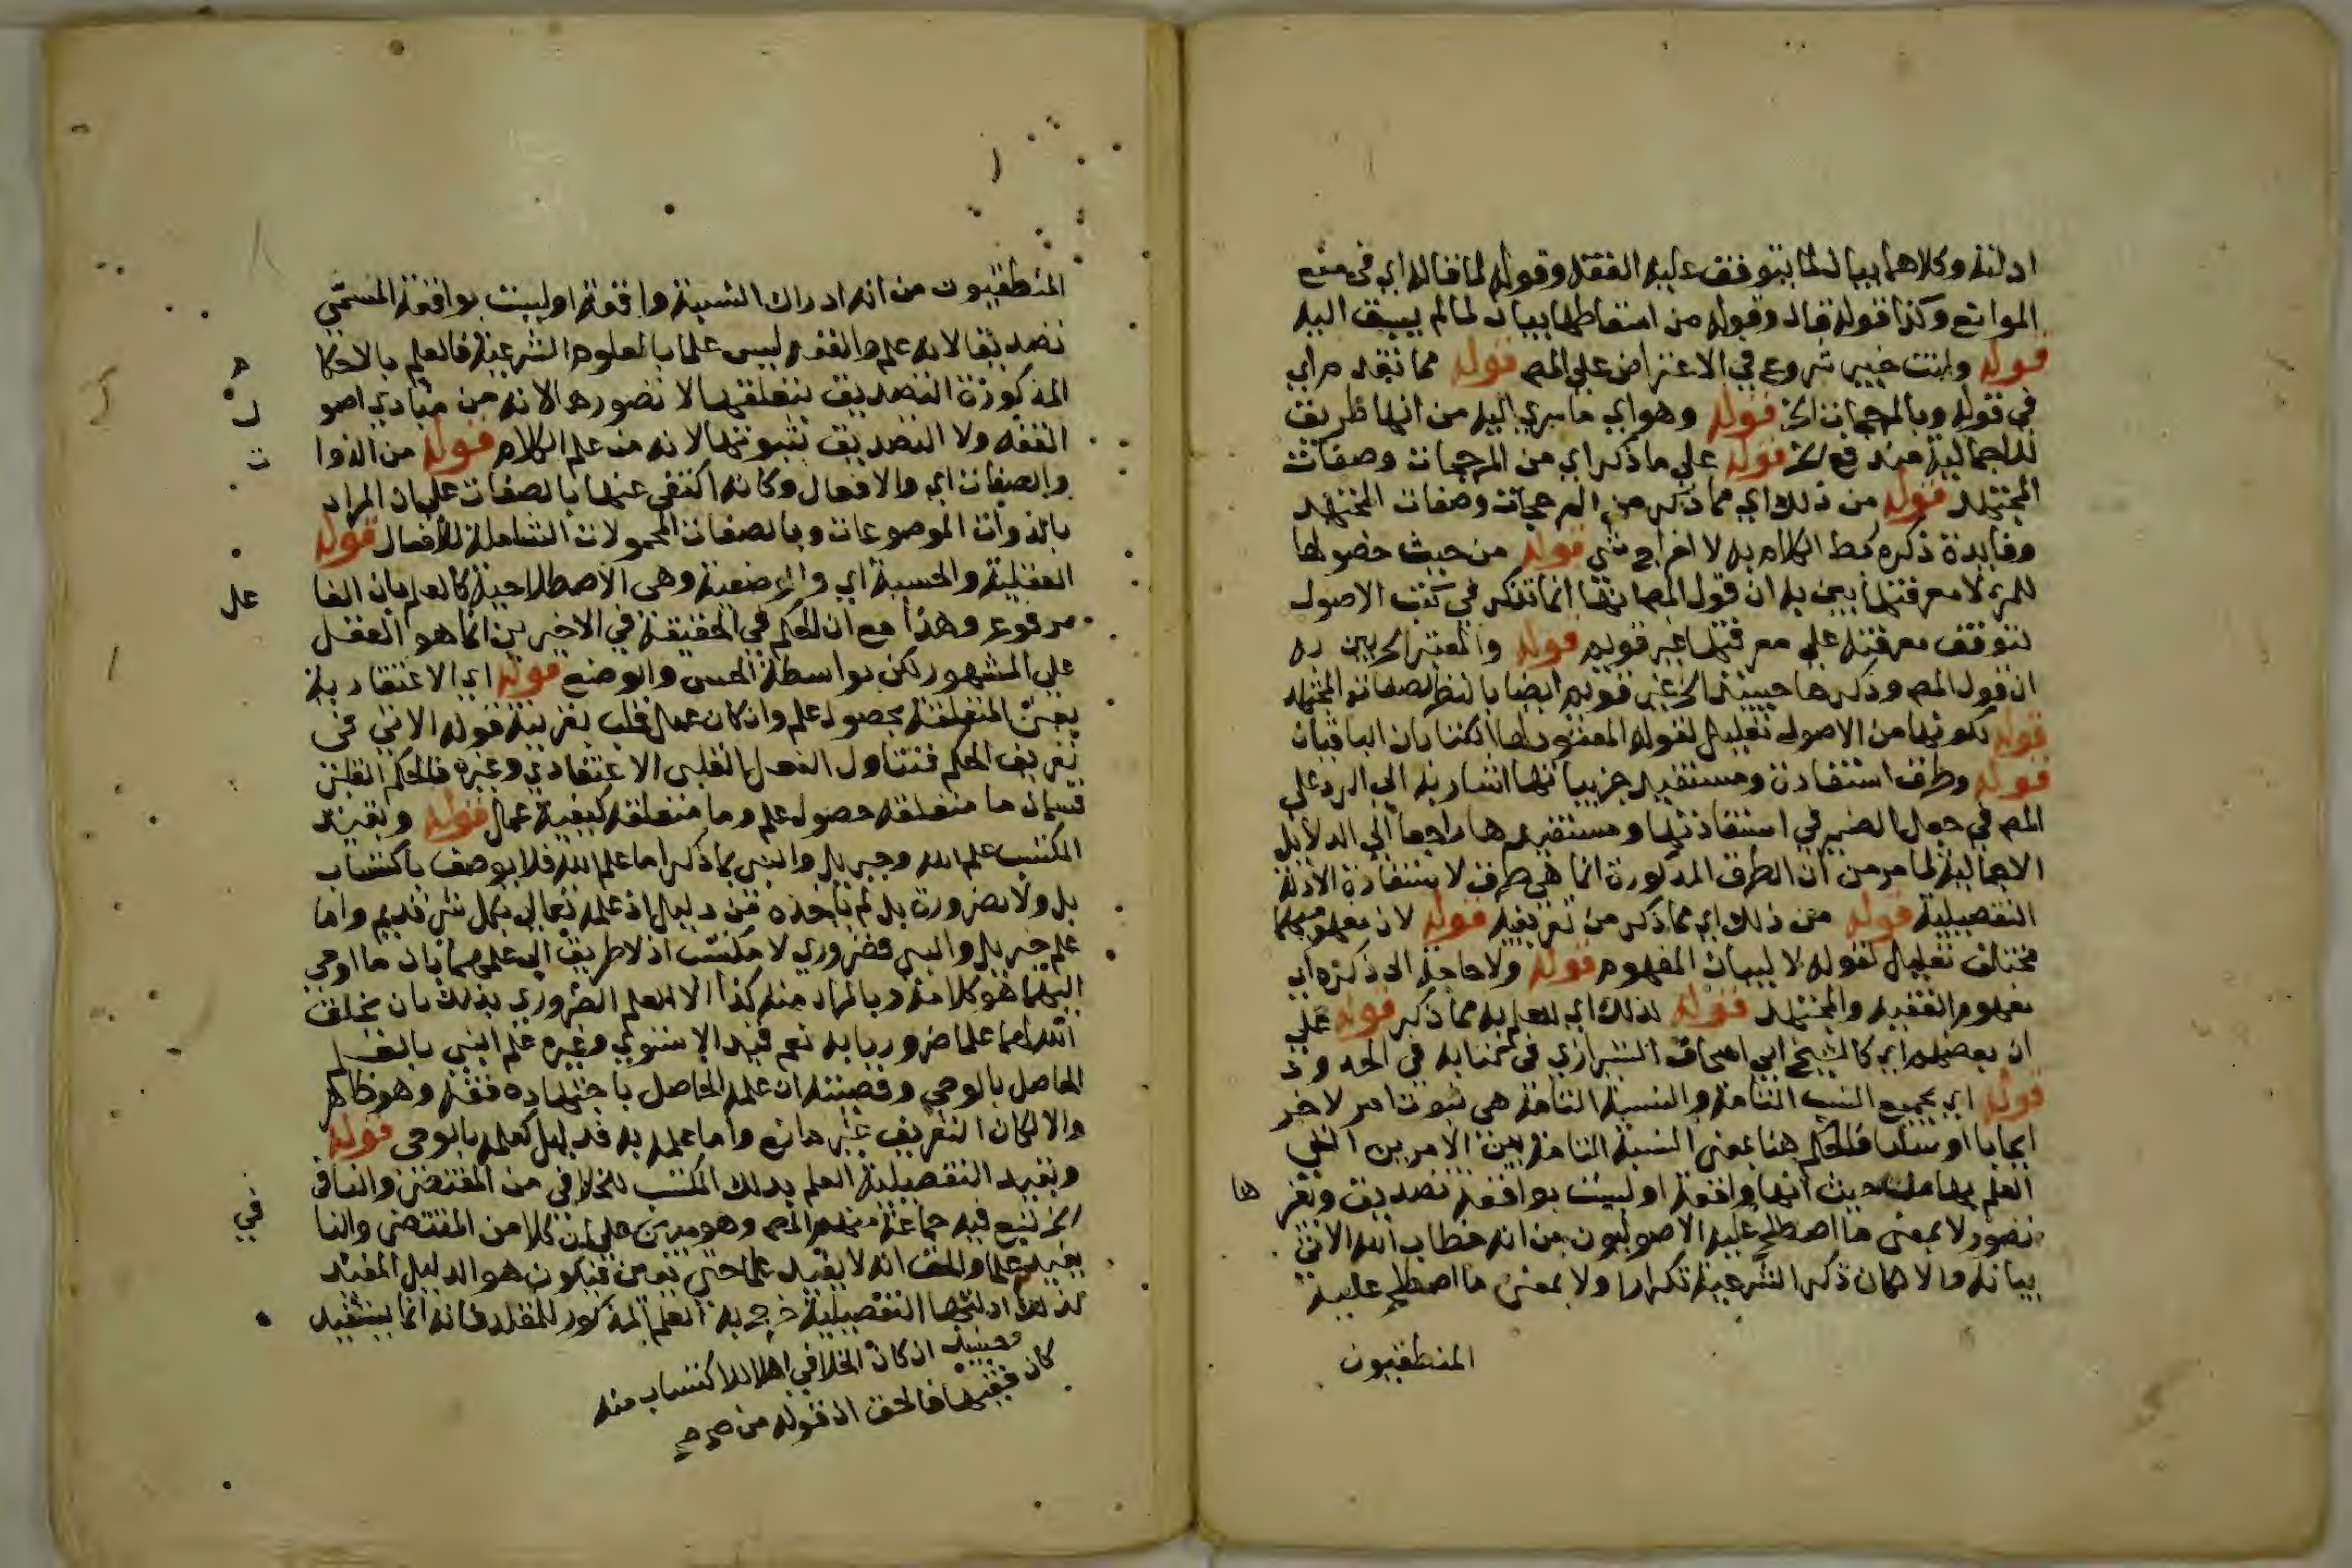 ادلته وكلاهما بيان لما يتوقف عليه الفقه وقوله لما قاله اي في منع
الموانع وكذا قوله قال وقوله من اسقاطها بيان لما لم يسبق اليه
قوله وانت خبير شروع في الاعتراض على المص قوله مما تقدم اي
في قوله وبالمرجحات الخ قوله وهو اي ما سري اليه من انها طريق
للاجمالية مندفع الخ قوله على ما ذكر اي من المرجحات وصفات
المجتهد قوله من ذلك اي مما ذكر من المرجحات وصفات المجتهد
وفايدة ذكره ربط الكلام به لا اخراج شي قوله من حيث حصولها
للمرء لا معرفتها بين به ان قول المص انها انما تذكر في كتب الاصول
لتوقف معرفته على معرفتها غير قويم قوله والمعتبر الخ بين به
ان قول المص وذكرها حينئذ الخ غير قويم ايضا بالنظر لصفات المجتهد
قوله لكونها من الاصول تعليل لقوله المعقود لها الكتابان الباقيان
قوله وطرق استفادة ومستفيد جزيياتها اشار به الى الرد على
المص في جعل الضمير في استفادتها ومستفيدها راجعا الى الدلايل
الاجمالية لما مر من ان الطرق المذكورة انما هي طرق لاستفادة الادلة
التفصيلية قوله من ذلك اي مما ذكر من تعريفيه قوله لان مفهومهما
مختلف تعليل لقوله لا لبيان المفهوم قوله ولا حاجة الى ذكره اي
مفهوم الفقيه والمجتهد قوله لذلك اي للعلم به مما ذكر قوله على
ان بعضهم اي كالشيخ ابي اسحاق الشيرازي في كتابه في الحدود
قوله اي بجميع النسب التامة والنسبة التامة هي ثبوت امر لاخر
ايجابا او سلبا فالحكم هنا بمعنى النسبة التامة بين الامرين التي
العلم بها من حيث انها واقعة او ليست بواقعة تصديق وبغيرها
تصور لا بمعنى ما اصطلح عليه الاصوليون من انه خطاب الله الاتي
بيانه والا لكان ذكر الشرعية تكرارا ولا بمعنى ما اصطلح عليه
المنطقيون
المنطقيون من انه ادراك النسبة واقعة او ليست بواقعة المسمى
تصديقا لانه علم والفقه ليس علما بالعلوم الشرعية فالعلم بالاحكام
المذكورة التصديق بتعلقها لا تصورها لانه من مبادي اصول
الفقه ولا التصديق بثبوتها لانه من علم الكلام قوله من الذوات
والصفات اي والافعال وكانه اكتفى عنها بالصفات على ان المراد
بالذوات الموضوعات وبالصفات المحمولات الشاملة للافعال قوله
العقلية والحسية اي والوضعية وهي الاصطلاحية كالعلم بان الفاعل
مرفوع وهذا مع ان الحكم في الحقيقة في الاخيرين انما هو العقل
على المشهور لكن بواسطة الحس والوضع قوله اي الاعتقادية
يعني المتعلقة بحصول علم وان كان عمل قلب بقرينة قوله الاتي في
تعريف الحكم فتتناول الفعل القلبي الاعتقادي وغيره فالحكم القلبي
قسمان ما متعلقه حصول علم وما متعلقه كيفية عمل قوله وبقيد
المكتسب علم الله وجبريل والنبي بما ذكر اما علم الله فلا يوصف باكتساب
بل ولا بضرورة بل لم ياخذه من دليل اذ علمه تعالى بكل شي قديم واما
علم جبريل والنبي فضروري لا مكتسب اذ لا طريق الى علمهما بان ما اوحي
اليهما هو كلامه وبالمراد منه كذا الا العلم الضروري بذلك بان يخلق
الله لهما علما ضروريا به نعم قيد الاسنوي وغيره علم النبي بالفعل
الحاصل بالوحي وقضيته ان علمه الحاصل باجتهاده فقه وهو ظاهر
والا لكان التعريف غير مانع واما علمه به فدليل كعلمه بالوحي قوله
وبقيد التفصيلية العلم بذلك المكتسب للخلافي من المقتضي والنافي
الخ تبع فيه جماعة منهم المص وهو مبني على ان كلا من المقتضي والنافي
يفيد علما والحق انه لا يفيد علما حتى يعين فيكون هو الدليل المفيد
لذلك ادلتها التفصيلية خرج به العلم المذكور للمقلد فانه انما يستفيد
وحينئذ ان كان الخلافي اهلا للاكتساب منه
كان فقيها فالحق ان قوله من صح صح